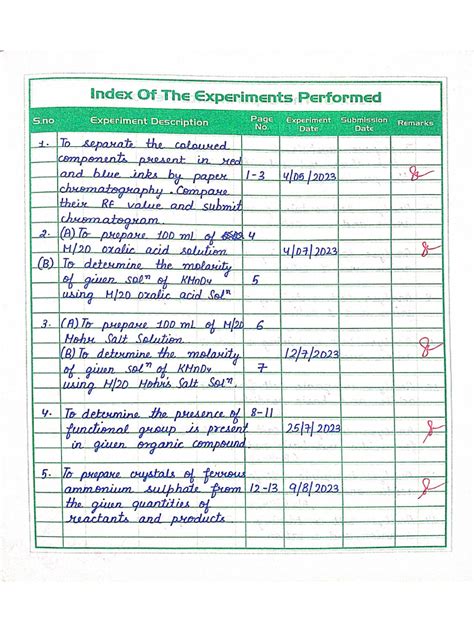 Index Of The Experiments Performed
S.no Experiment Description Page No. Experiment Date Submission Date Remarks
1. To separate the coloured
components present in red
and blue inks by paper 1-3 4/05/2023
chromatography. Compare
their RF value and submit
chromatogram.
2. (A) To prepare 100 mL of 4
M/20 oxalic acid solution 4/07/2023
(B) To determine the molarity
of given solⁿ of KMnO4 5
using M/20 oxalic acid Solⁿ
3. (A) To prepare 100 mL of M/20 6
Mohr Salt Solution.
(B) To determine the molarity 12/7/2023
of given solⁿ of KMnO4 7
using M/20 Mohr's Salt Solⁿ.
4. To determine the presence of 8-11
functional group is present 25/7/2023
in given organic compound
5. To prepare crystals of ferrous
ammonium sulphate from 12-13 9/8/2023
the given quantities of
reactants and products